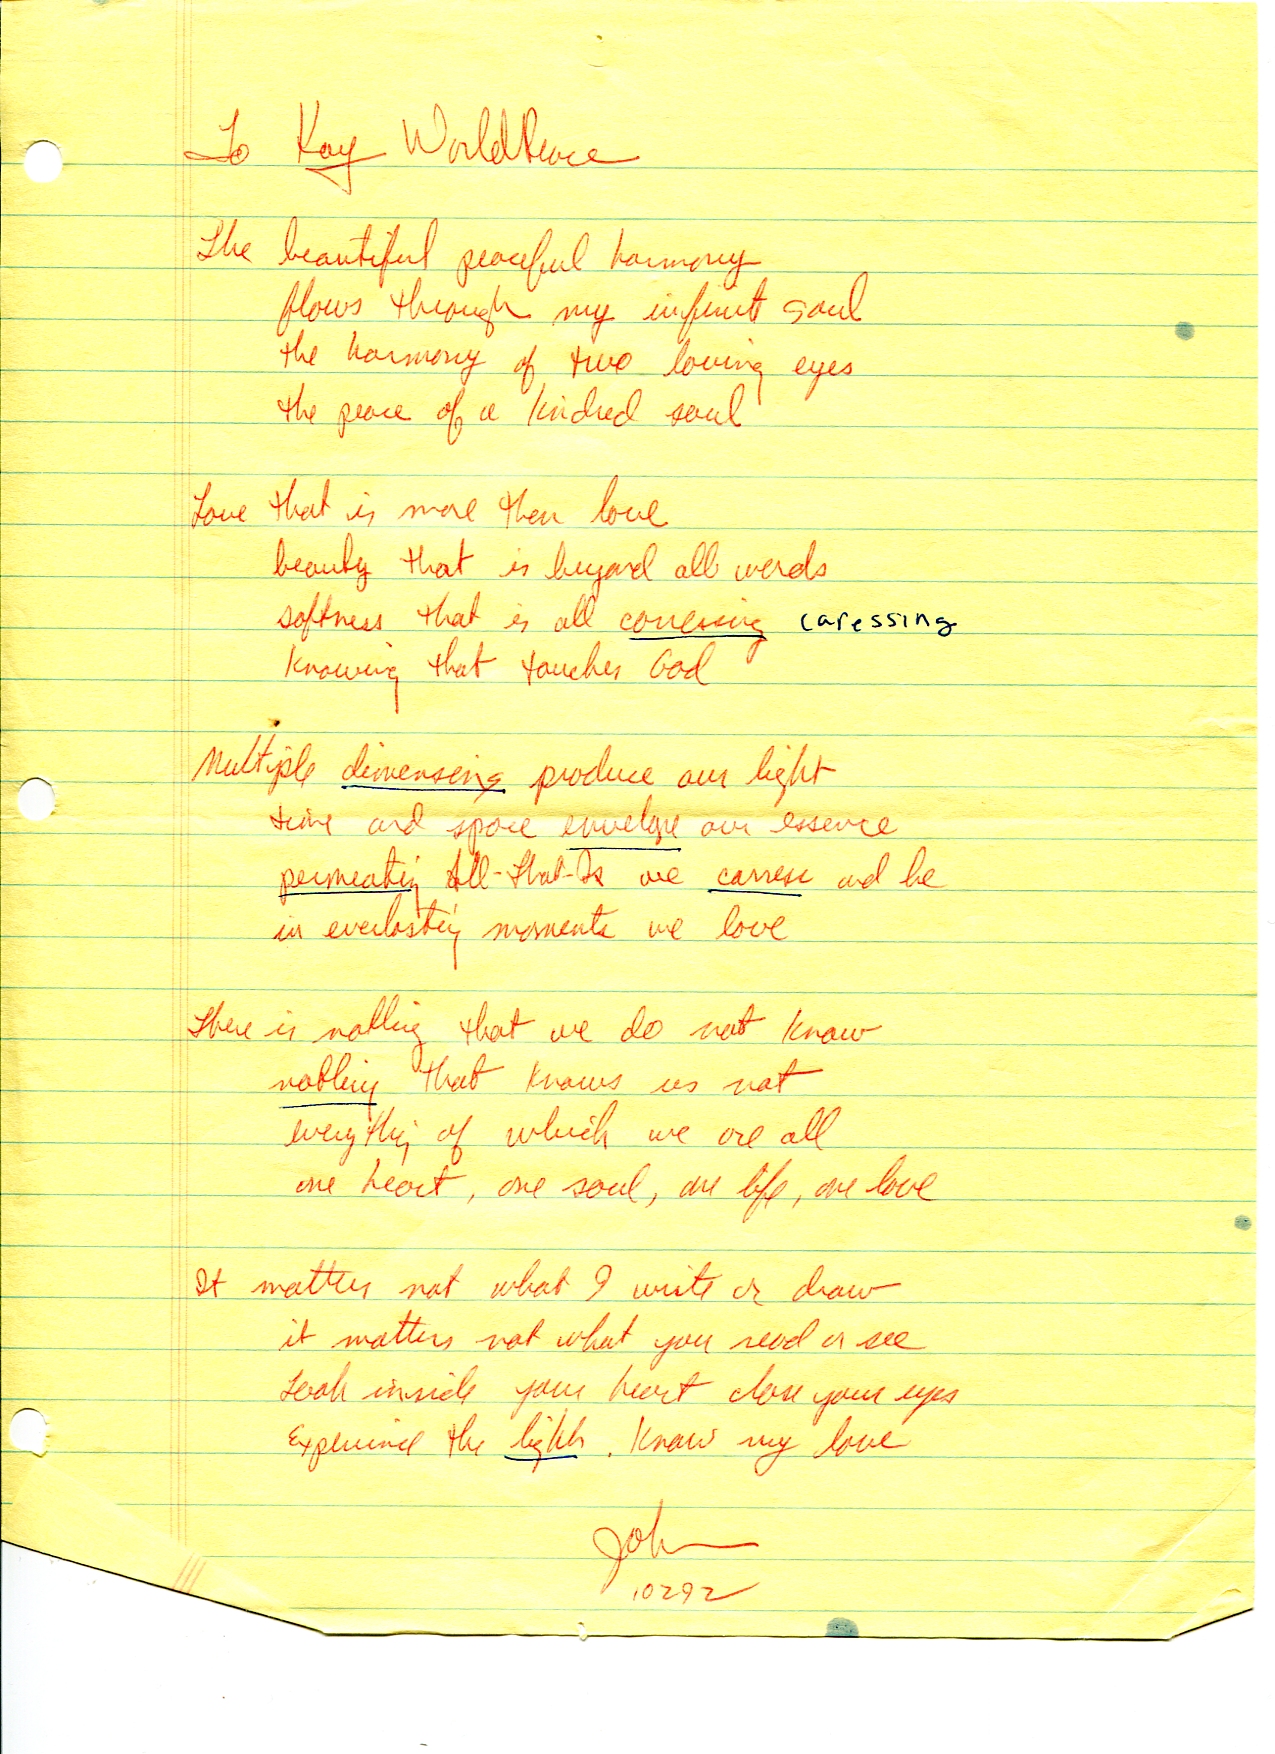 To Kay WorldPeace
The beautiful peaceful harmony
flows through my infinit soul
the harmony of two loving eyes
the peace of a kindred soul
Love that is more then love
beauty that is beyond all words
softness that is all carressing caressing
Knowing that touches God
Multiple dimensins produce our light
time and space envelope our essence
permeating All-That-Is we carress and be
in everlasting moments we love
There is nothing that we do not know
nothing that knows us not
everything of which we are all
one heart, one soul, one life, one love
It matters not what I write or draw
it matters not what you read or see
Look inside your heart close your eyes
Experience the light. Know my love
John
10292